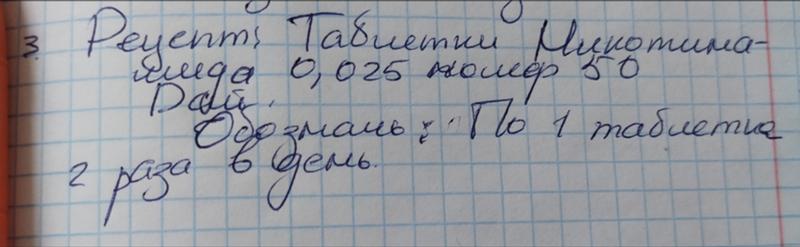 3. Рецепт: Таблетки Никотина-
мида 0,025 номер 50
Дай.
Обозначь: По 1 таблетке
2 раза в день.